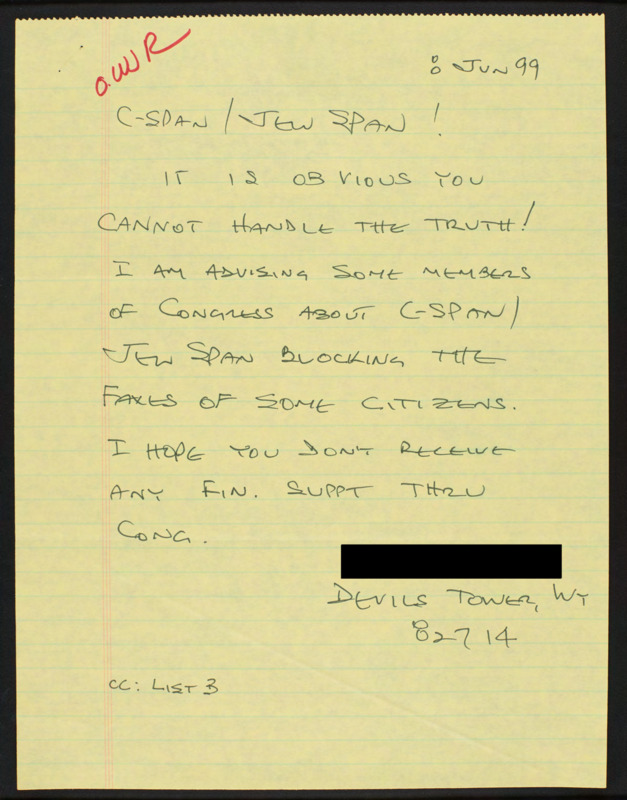 O.W.R
8 JUN 99
C-SPAN / JEW SPAN !
IT IS OBVIOUS YOU
CANNOT HANDLE THE TRUTH!
I AM ADVISING SOME MEMBERS
OF CONGRESS ABOUT C-SPAN/
JEW SPAN BLOCKING THE
FAXES OF SOME CITIZENS.
I HOPE YOU DON'T RECEIVE
ANY FIN. SUPPT THRU
CONG.
DEVILS TOWER, WY
82714
CC: LIST 3